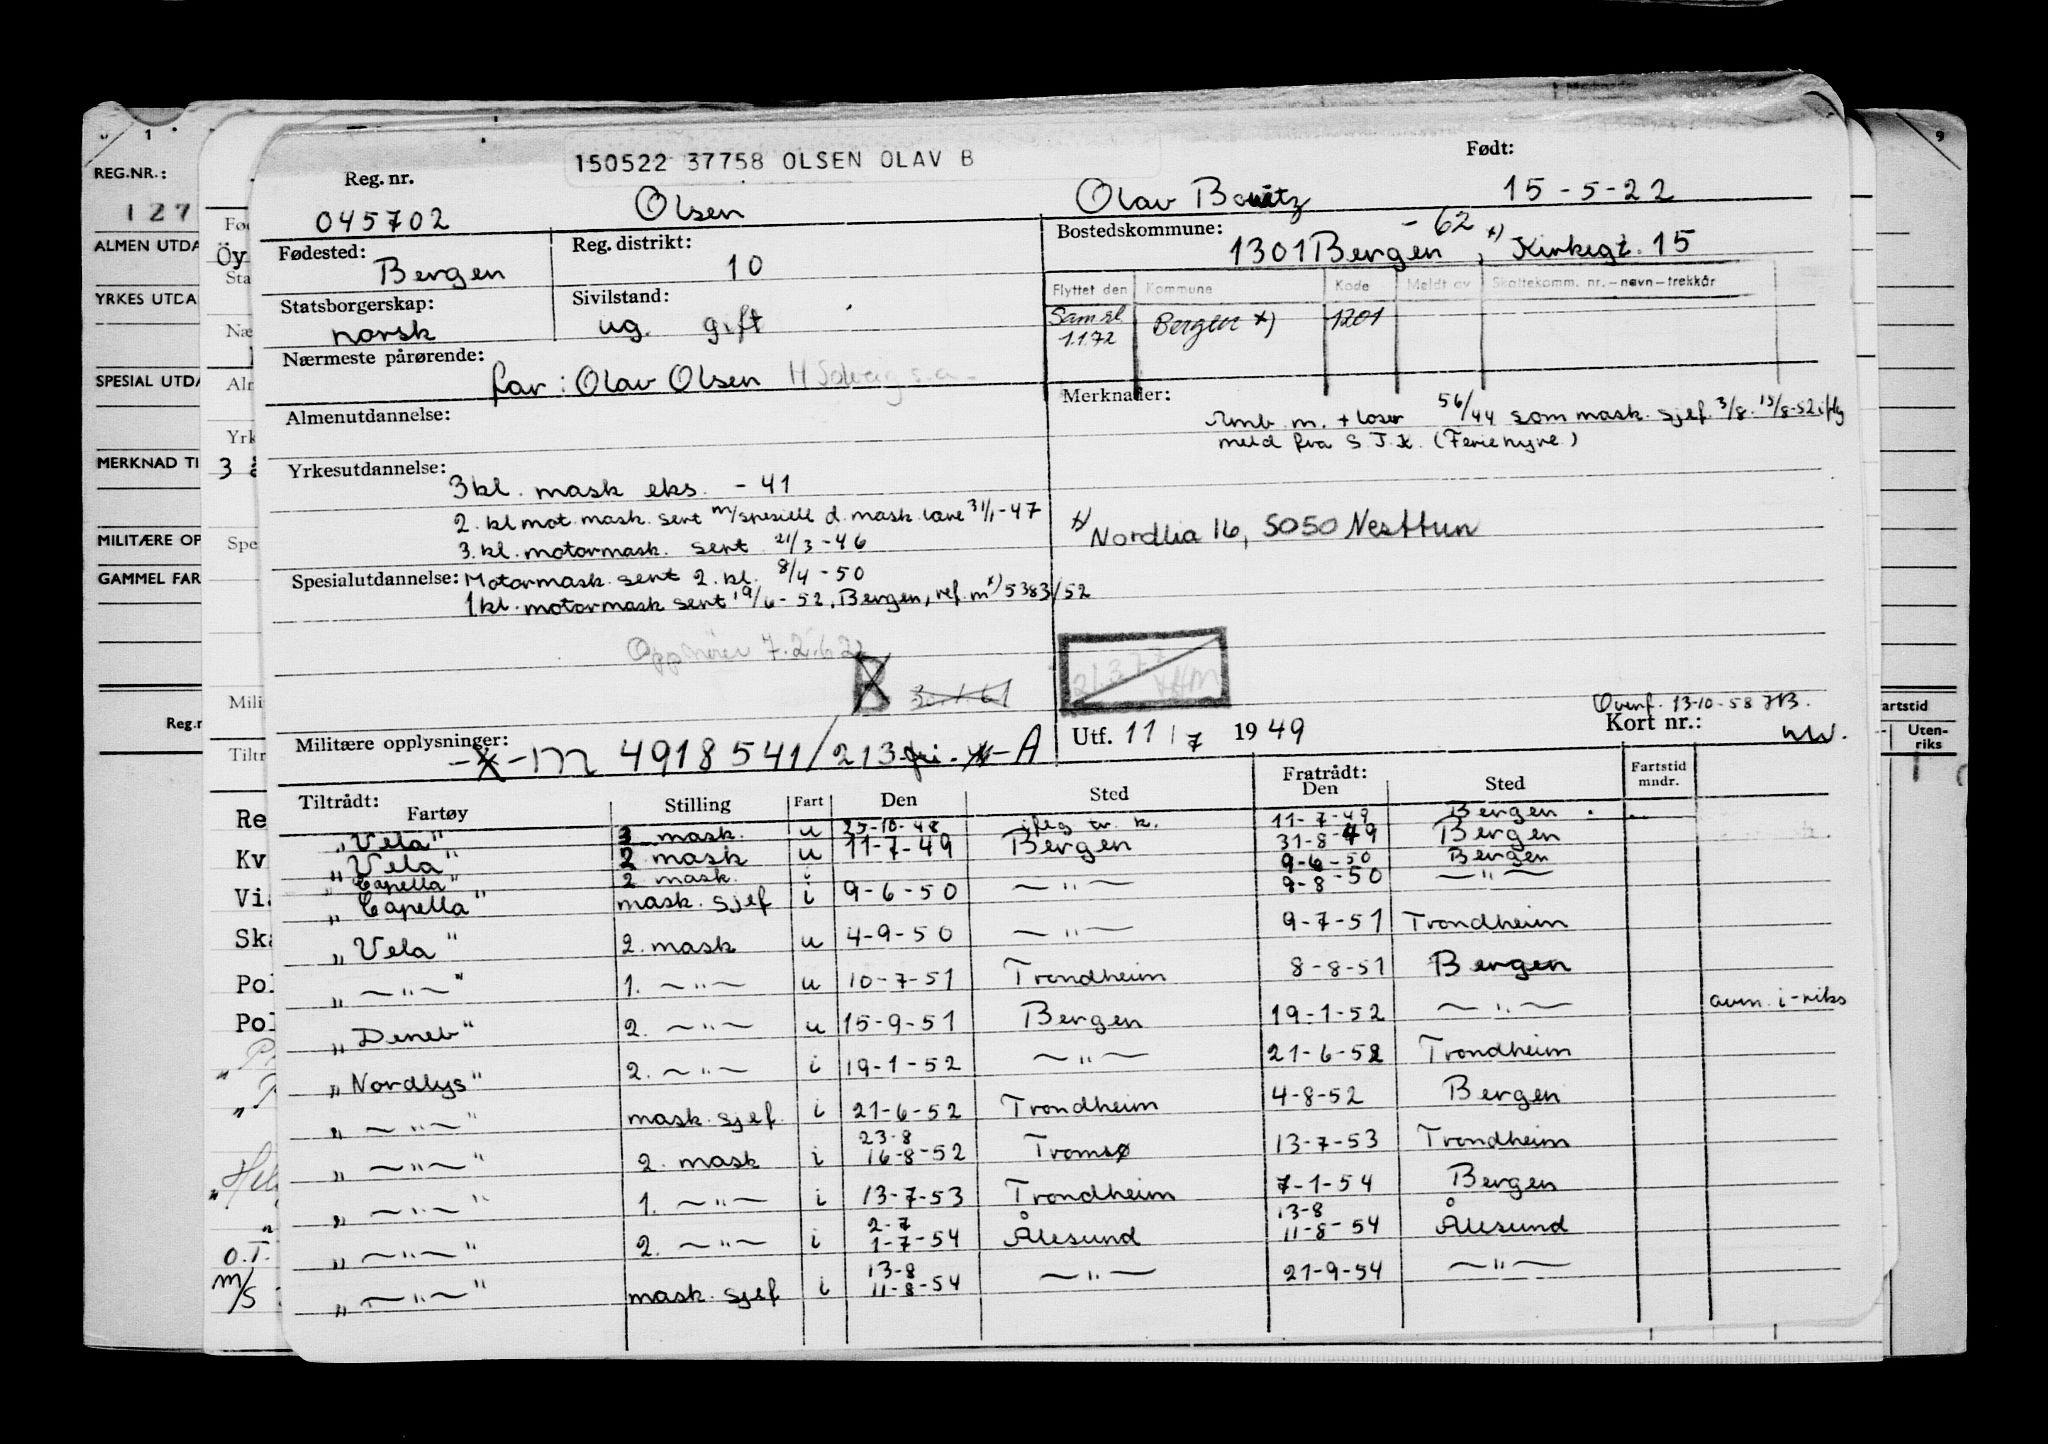 150522 37758 OLSEN OLAV B
Reg. nr. Født:
045702 Olsen Olav 15-5-22
Fødested: Bergen
Reg. distrikt: 10
Bostedskommune: -62 x)
1301 Bergen, Kirkegt. 15
Statsborgerskap: norsk
Sivilstand: ug. gift
Flyttet den Kommune Kode Meldt av Skattekomm. nr.-navn-trekkår
1.1.72 Bergen x) 1201
Nærmeste pårørende: far: Olav Olsen H Solveig s.a.
Almenutdannelse:
Merknader: 56/44 som mask. sjef 3/8-15/8-52 iflg
meld fra S.J.K. (Ferie hyre)
Yrkesutdannelse:
3kl. mask eks. -41
2. kl mot. mask. sert m/spesiell d. mask. lære 31/1-47
3. kl. motormask. sert 21/3-46
x) Nordlia 16, 5050 Nesttun
Spesialutdannelse: Motormask sert 2. kl. 8/4-50
1kl. motormask sert 19/6-52, Bergen, ref. m x) 5383/52
7.2.62
B
Overf. 13-10-58
Militære opplysninger: -m 4918541/213 fri. -A
Utf. 11/7 1949
Kort nr.:
Tiltrådt: Fratrådt:
Fartøy Stilling Fart Den Sted Den Sted Fartstid mndr.
"Vela" 3 mask. u 25-10-48 iflg tr. k. 11-7-49 Bergen
"Vela" 2 mask u 11-7-49 Bergen 31-8-49 Bergen
"Capella" 2 mask. i 9-6-50 Bergen
"Capella" mask. sjef i 9-6-50 —"— 9-8-50 —"—
"Vela" 2. mask u 4-9-50 —"— 9-7-51 Trondheim
"—"—" 1. —"— u 10-7-51 Trondheim 8-8-51 Bergen
"Deneb" 2. —"— u 15-9-51 Bergen 19-1-52 —"— avm. i-riks
"Nordlys" 2. —"— i 19-1-52 —"— 21-6-52 Trondheim
"—"—" mask. sjef i 21-6-52 Trondheim 4-8-52 Bergen
"—"—" 2. mask i 23-8 16-8-52 Tromsø 13-7-53 Trondheim
"—"—" 1. —"— i 13-7-53 Trondheim 7-1-54 Bergen
"—"—" 2. —"— i 2-7 1-7-54 Ålesund 13-8 11-8-54 Ålesund
"—"—" mask. sjef i 13-8 11-8-54 —"— 21-9-54 —"—
1
REG.NR.:
127
ALMEN UTDA
YRKES UTDA
SPESIAL UTDA
MERKNAD TI
MILITÆRE OP
GAMMEL FAR
Reg.n
Öy
Sta
Næ
Alm
Yrk
3 å
Spe
Mili
Tiltr
Re
Kv
Via
Ska
Pol
Pol
O.T.
m/s
9
artstid
Uten-
riks